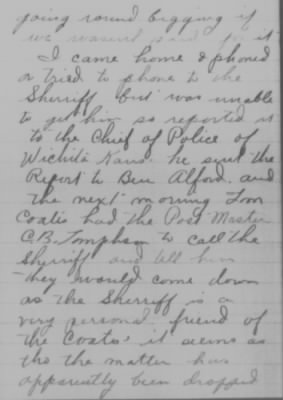 going round bigging if
we wasent paid for it
I came home & phoned
or tried to phone to the
Sherriff but was unable
to get him so reported it
to the Chief of Police of
Wichita Kans. he sent the
Report to Ben Alford. and
the next morning Tom
Coats had the Post Master
C.B. Tompham to call the
Sherriff and tell him
they would come down
as the Sherriff is a
very personal friend of
the Coats' it seems as
tho the matter has
apparently been dropped